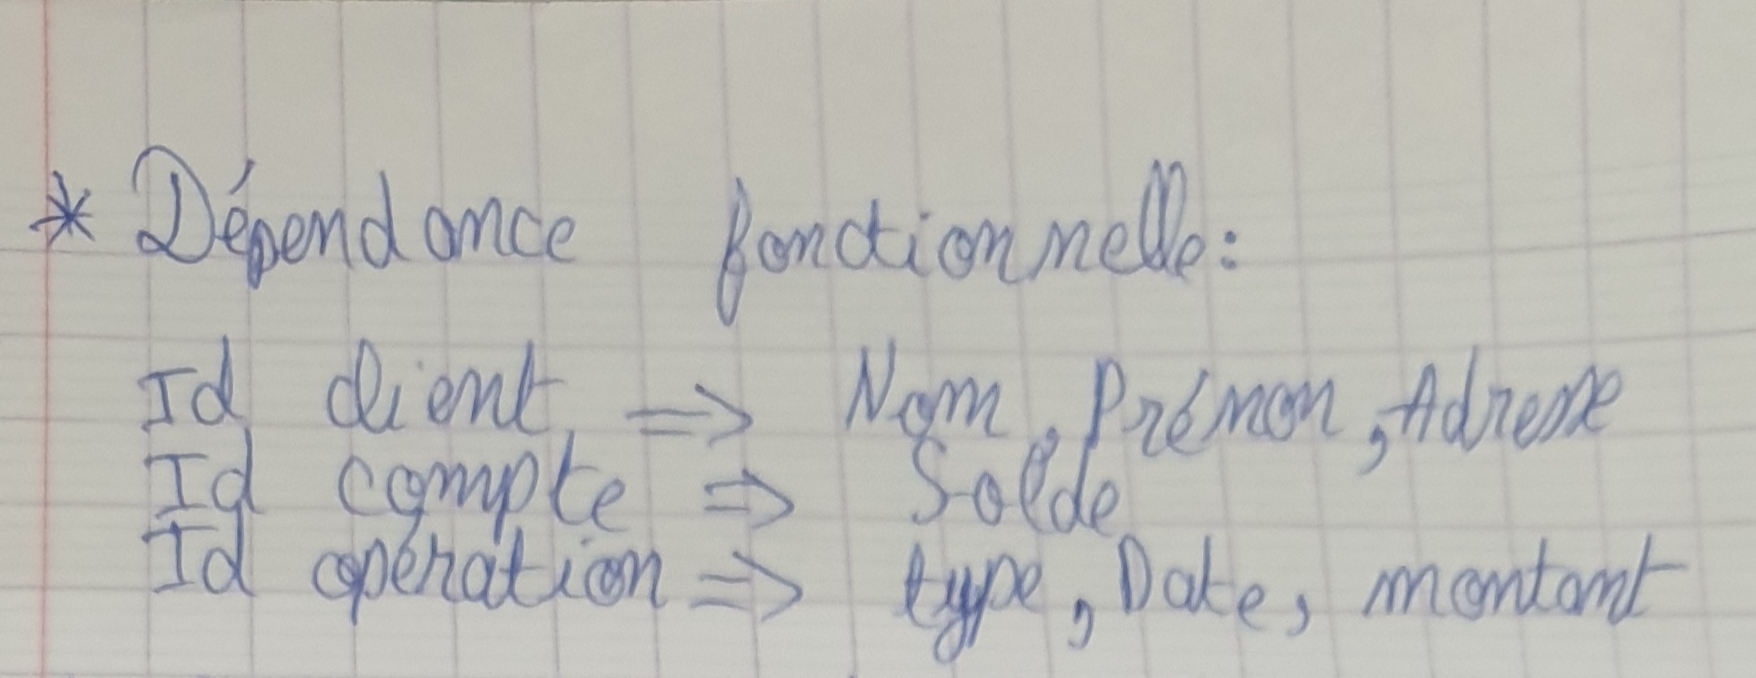 * Dépendance fonctionnelle:
Id client => Nom, Prénon, Adresse
Id compte => Solde
Id opération => type, Date, montant